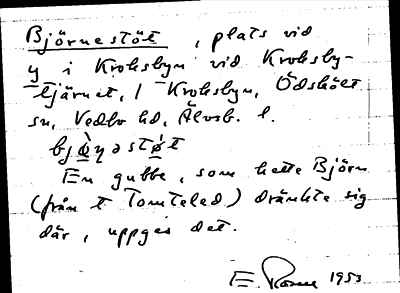 Björnestöt, plats vid
y i Kroksbyn vid Kroksby-
tjärnet, / Kroksbyn, Ödskölt
sn, Vedbo hd, Älvsb. l.
En gubbe, som hette Björn
(från t. Tomteled) dränkte sig
där, uppges det.
E. 1953